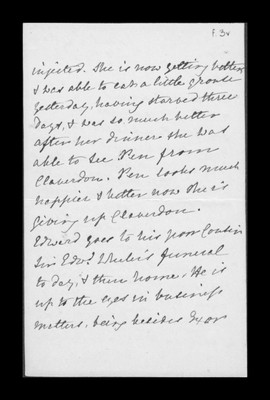 f. 3v
injected. She is now getting better
& was able to eat a little grouse
yesterday, having starved three
days, & was so much better
after her dinner she was
able to see Pen from
Claverdon. Pen looks much
happier & better now she is
giving up Claverdon.
Edward goes to his poor Cousin
Sir Edwd. funeral
to day, & then home, He is
up to the eyes in business
matters, being besides Exor